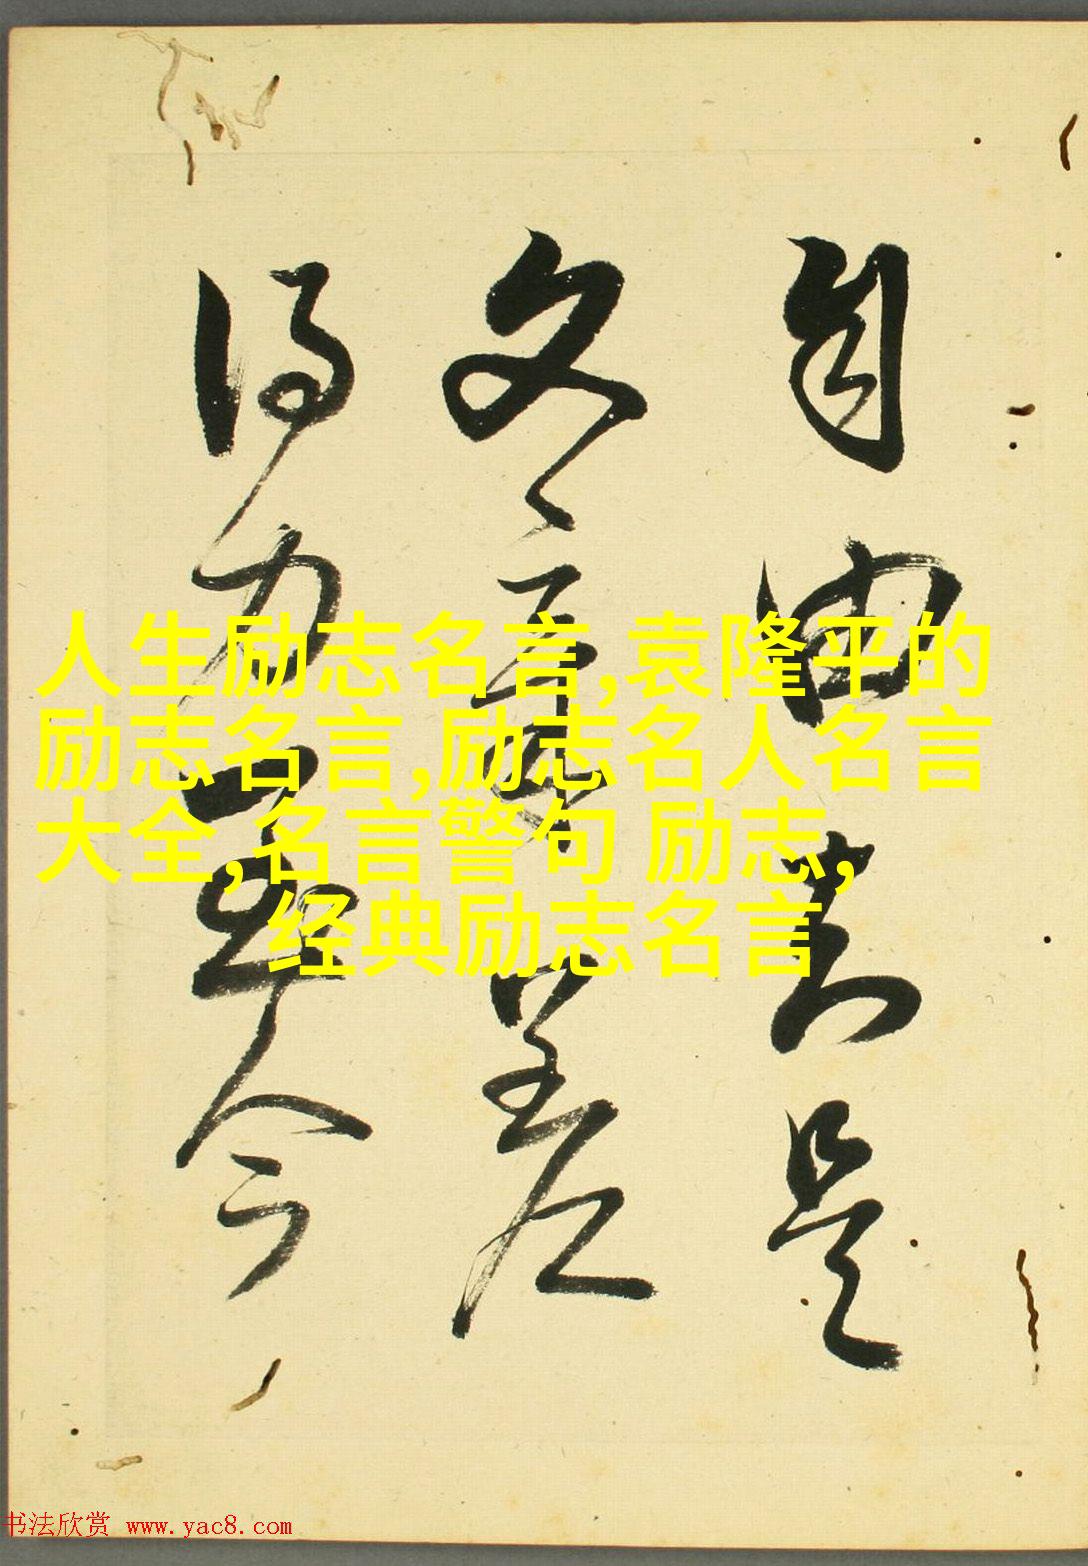 人生励志名言,袁隆平的
励志名言,励志名人名言
大全,名言警句 励志,
经典励志名言
自由是
文章
得力今
书法欣赏 www.yac8.com